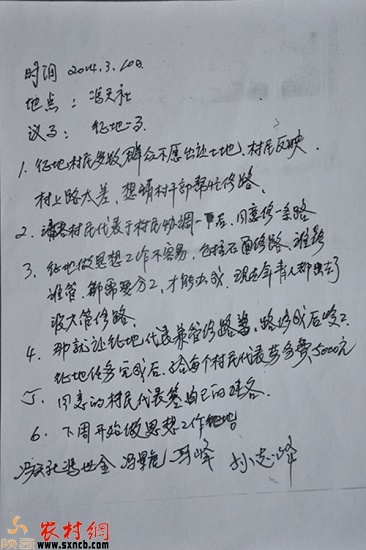 时间 2014.3.10日
地点：冯天社
议事：征地一事
1. 征地村民多数群众不愿出让土地，村民反映
村上路太差，想请村干部帮忙修路。
2. 请各村民代表于村民协调一下后，同意修一条路
3. 征地做思想工作不容易，包括后面修路，谁修
谁管，都需要分工，才能办成，现在年青人都
没人管修路。
4. 那就让征地代表兼管修路
征地任务完成后，给每个村民代表劳务费5000元
5. 同意的村民代表签自己的姓名
6. 下周开始做思想工作
冯天社 冯世全
陕西
农村網
www.sxncb.com